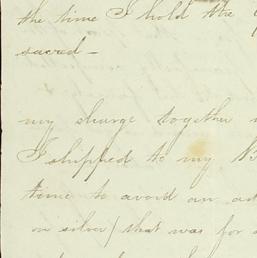 the time I hold the
sacred —
my charge together
I shipped to my
time to avoid an
on silver / that was for